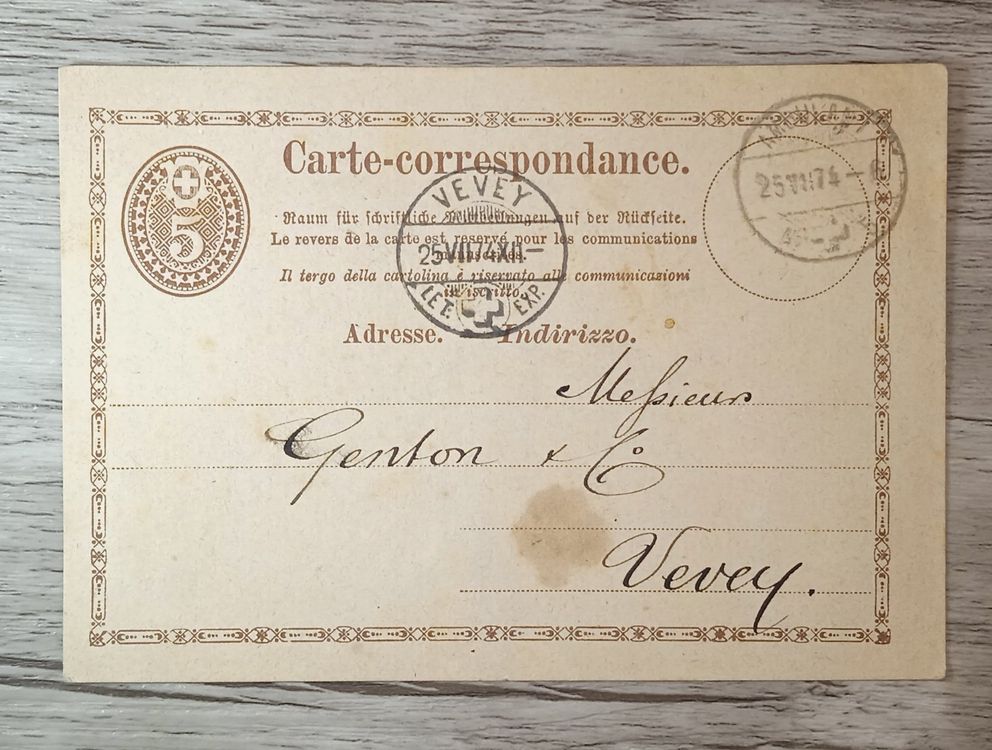 Carte-correspondance.
5
Raum für schriftliche Mittheilungen auf der Rückseite.
Le revers de la carte est reservé pour les communications
manuscrites.
Il tergo della cartolina è riservato alle communicazioni
in iscritto.
VEVEY
25 VII 74 XII–
LET. EXP.
25 VII 74 – 6
Adresse. Indirizzo.
Messieurs
Genton & Co
Vevey.